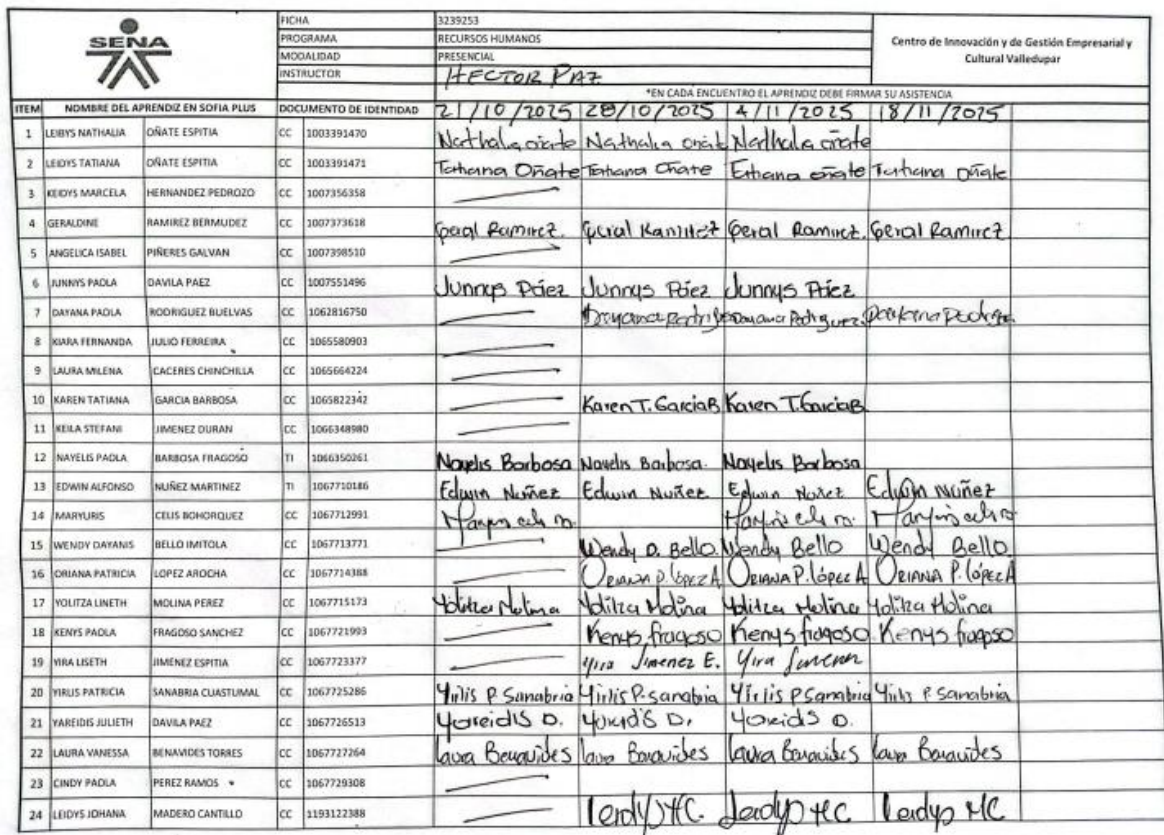 SENA
FICHA 3239253
PROGRAMA RECURSOS HUMANOS
MODALIDAD PRESENCIAL
INSTRUCTOR HECTOR PAZ
Centro de Innovación y de Gestión Empresarial y
Cultural Valledupar
*EN CADA ENCUENTRO EL APRENDIZ DEBE FIRMAR SU ASISTENCIA
ITEM NOMBRE DEL APRENDIZ EN SOFIA PLUS DOCUMENTO DE IDENTIDAD 21/10/2025 28/10/2025 4/11/2025 18/11/2025
1 LEIBYS NATHALIA OÑATE ESPITIA CC 1003391470 Nathalia oñate Nathalia oñate Nathalia oñate
2 LEIDYS TATIANA OÑATE ESPITIA CC 1003391471 Tatiana Oñate Tatiana Oñate Tatiana oñate Tatiana Oñate
3 KEIDYS MARCELA HERNANDEZ PEDROZO CC 1007356358
4 GERALDINE RAMIREZ BERMUDEZ CC 1007373618 Geral Ramirez. Geral Ramirez Geral Ramirez. Geral Ramirez
5 ANGELICA ISABEL PIÑERES GALVAN CC 1007398510
6 JUNNYS PAOLA DAVILA PAEZ CC 1007551496 Junnys Páez Junnys Páez Junnys Páez
7 DAYANA PAOLA RODRIGUEZ BUELVAS CC 1062816750 Dayana Rodriguez.
8 KIARA FERNANDA JULIO FERREIRA CC 1065580903
9 LAURA MILENA CACERES CHINCHILLA CC 1065664224
10 KAREN TATIANA GARCIA BARBOSA CC 1065822342 Karen T. GarciaB Karen T. GarciaB
11 KEILA STEFANI JIMENEZ DURAN CC 1066348980
12 NAYELIS PAOLA BARBOSA FRAGOSO TI 1066350261 Nayelis Barbosa Nayelis Barbosa. Nayelis Barbosa
13 EDWIN ALFONSO NUÑEZ MARTINEZ TI 1067710186 Edwin Nuñez Edwin Nuñez Edwin Nuñez Edwin Nuñez
14 MARYURIS CELIS BOHORQUEZ CC 1067712991
15 WENDY DAYANIS BELLO IMITOLA CC 1067713771 Wendy D. Bello. Wendy Bello Wendy Bello.
16 ORIANA PATRICIA LOPEZ AROCHA CC 1067714388 ORIANA P. lópez A ORIANA P. lópez A ORIANA P. lópez A
17 YOLITZA LINETH MOLINA PEREZ CC 1067715173 Yolitza Molina Yolitza Molina Yolitza Molina Yolitza Molina
18 KENYS PAOLA FRAGOSO SANCHEZ CC 1067721993 Kenys fragoso Kenys fragoso. Kenys fragoso
19 YIRA LISETH JIMENEZ ESPITIA CC 1067723377 Yira Jimenez E. Yira Jimenez
20 YIRLIS PATRICIA SANABRIA CUASTUMAL CC 1067725286 Yirlis P. Sanabria Yirlis P. sanabria Yirlis P Sanabria Yirlis P. Sanabria
21 YAREIDIS JULIETH DAVILA PAEZ CC 1067726513 Yareidis D. Yareidis D. Yareidis D.
22 LAURA VANESSA BENAVIDES TORRES CC 1067727264 laura Benavides laura Benavides laura Benavides laura Benavides
23 CINDY PAOLA PEREZ RAMOS CC 1067729308
24 LEIDYS JOHANA MADERO CANTILLO CC 1193122388 Leidys MC. Leidys MC Leidys MC